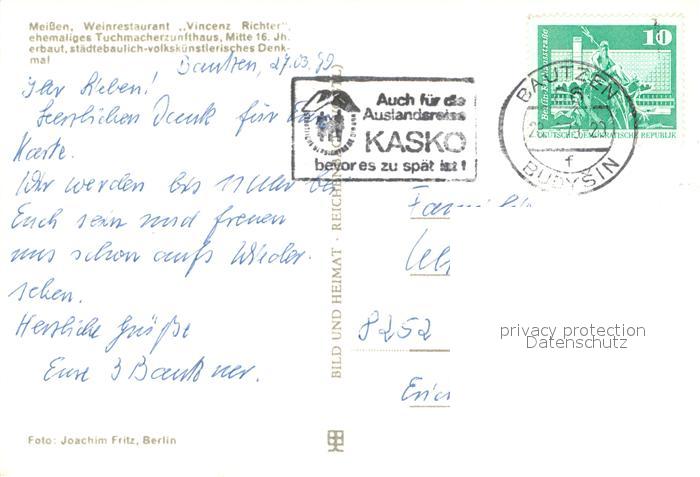 Meißen, Weinrestaurant „Vincenz Richter",
ehemaliges Tuchmacherzunfthaus, Mitte 16. Jh.
erbaut, städtebaulich-volkskünstlerisches Denk-
mal
Bautzen, 27.03.
Ihr Lieben!
Herzlichen Dank für
Karte.
Wir werden bis 11 Uhr bei
Euch sein und freuen
uns schon aufs Wieder-
sehen.
Herzliche Grüße
Eure 3 Bautzner.
Foto: Joachim Fritz, Berlin
BILD UND HEIMAT · REICHENBACH
Auch für die
Auslandsreise
KASKO
bevor es zu spät ist!
BAUTZEN
f
BUDYŠIN
10
DEUTSCHE DEMOKRATISCHE REPUBLIK
Fam
8252
privacy protection
Datenschutz